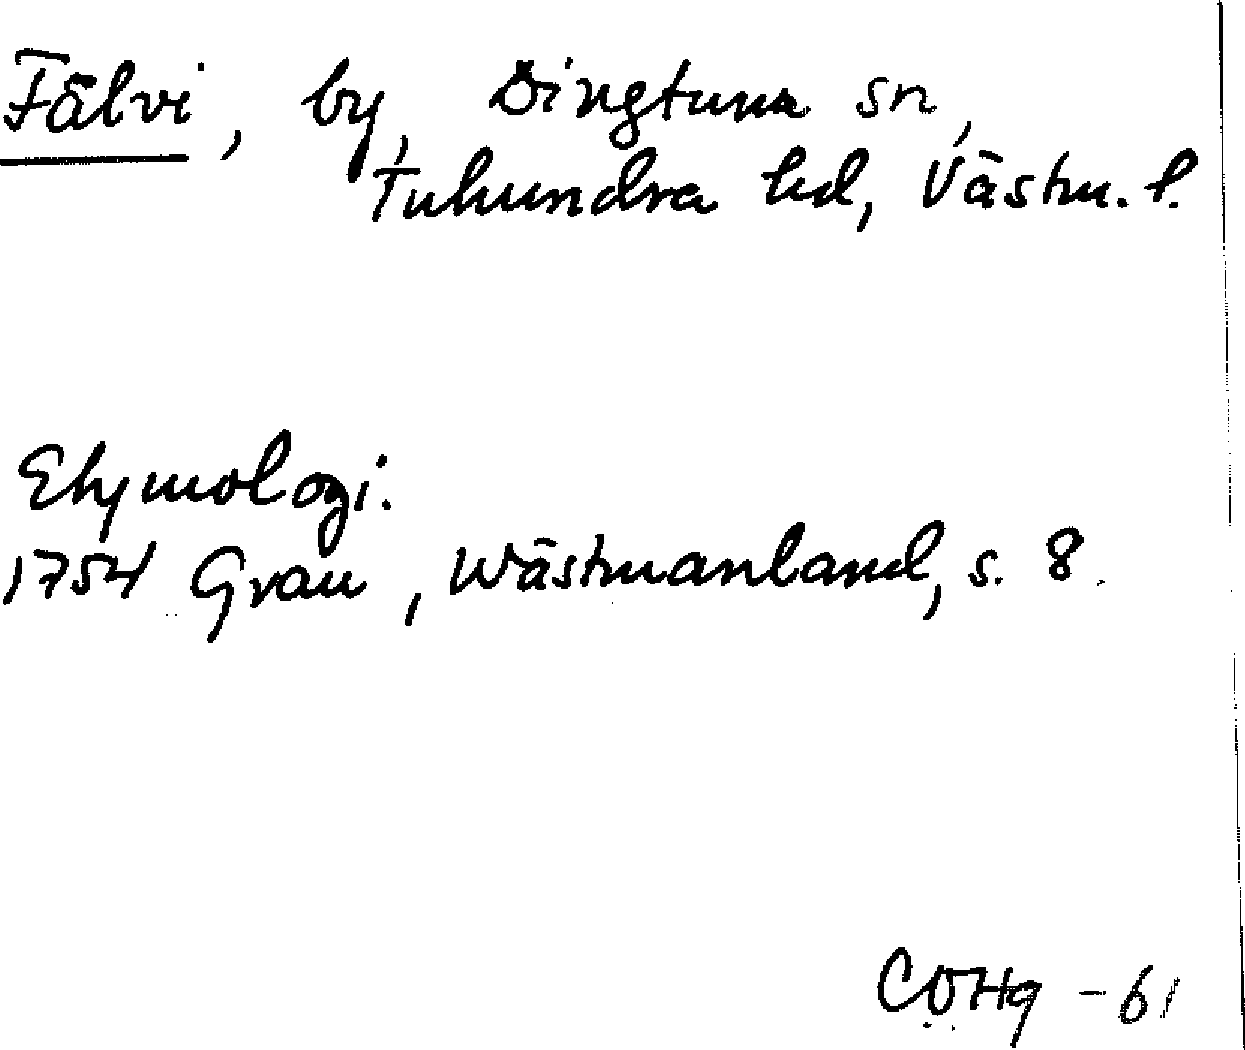 Fälvi, by, Dingtuna sn,
Tuhundra hd, Västm. l.
Etymologi.
1754 Grau, Wästmanland, s. 8.
COHq -61